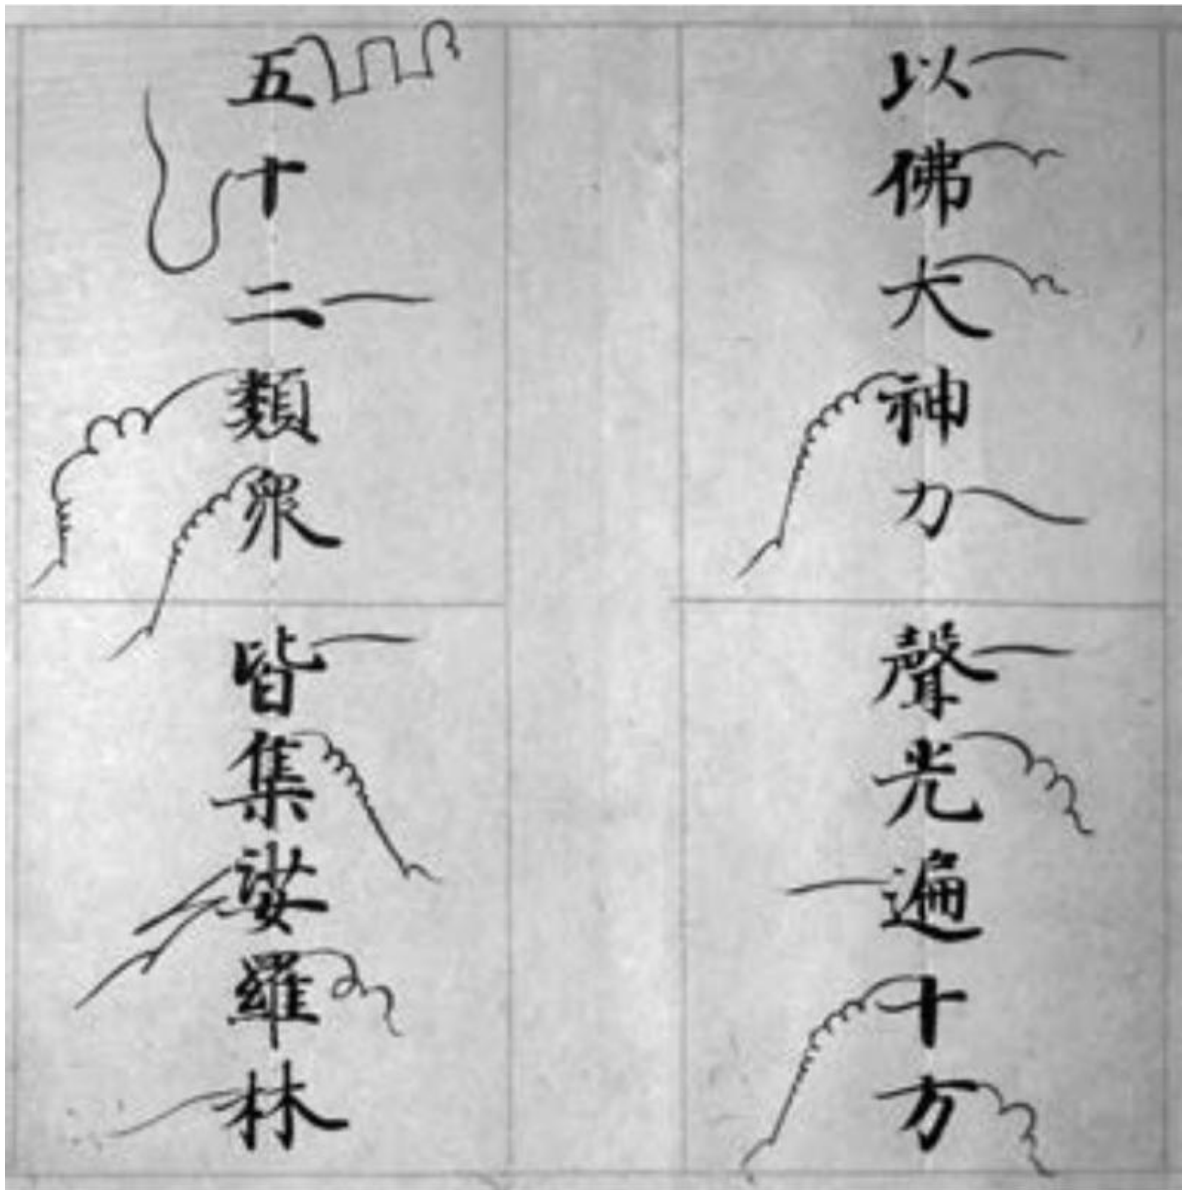 以佛大神力
聲光遍十方
五十二類衆
皆集娑羅林